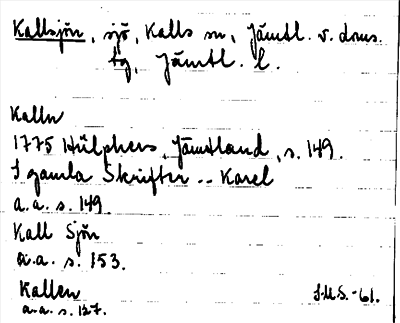 Kallsjön, sjö, Kalls sn, Jämtl. v. doms.
tg, Jämtl. l.
Kalln
1775 Hülphers, Jämtland, s. 149.
I gamla Skrifter -- Karel
a.a. s. 149
Kall Sjön
a.a. s. 153.
Kallen
a.a. s. 127.
I.M.S.-61.